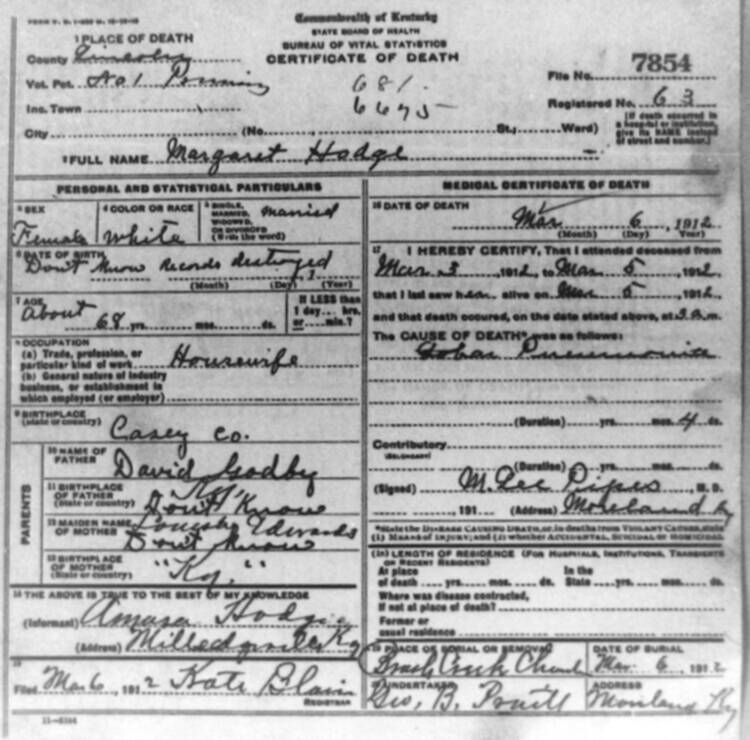 Commonwealth of Kentucky
STATE BOARD OF HEALTH
BUREAU OF VITAL STATISTICS
CERTIFICATE OF DEATH
1 PLACE OF DEATH
County Lincoln
Vot. Pct. No 1
681.
6675
File No. 7854
Registered No. 63
Inc. Town
City (No. St.; Ward)
[If death occurred in a hospital or institution, give its NAME instead of street and number.]
2 FULL NAME Margaret Hodge
PERSONAL AND STATISTICAL PARTICULARS
3 SEX
Female
4 COLOR OR RACE
White
5 SINGLE, MARRIED, WIDOWED, OR DIVORCED (Write the word)
Married
6 DATE OF BIRTH
Don't Know Records destroyed 1
(Month) (Day) (Year)
7 AGE
About 68 yrs. mos. ds.
If LESS than 1 day... hrs. or ... min.?
8 OCCUPATION
(a) Trade, profession, or particular kind of work Housewife
(b) General nature of industry business, or establishment in which employed (or employer)
9 BIRTHPLACE
(State or country)
Casey Co.
PARENTS
10 NAME OF FATHER
David Godby
11 BIRTHPLACE OF FATHER
(State or country)
"Ky"
Don't Know
12 MAIDEN NAME OF MOTHER
Edwards
Don't Know
13 BIRTHPLACE OF MOTHER
(State or country)
"Ky."
14 THE ABOVE IS TRUE TO THE BEST OF MY KNOWLEDGE
(Informant) Amasa Hodge
(Address) Milledgeville Ky
15
Filed Mar 6, 1912 Kate Blain
REGISTRAR
11-6184
MEDICAL CERTIFICATE OF DEATH
16 DATE OF DEATH
Mar 6, 1912
(Month) (Day) (Year)
17 I HEREBY CERTIFY, That I attended deceased from
Mar 3 1912, to Mar 5, 1912,
that I last saw her alive on Mar 5, 1912,
and that death occured, on the date stated above, at 3 a m.
The CAUSE OF DEATH* was as follows:
Lobar Pneumonia
(Duration) yrs. mos. 4 ds.
Contributory
(SECONDARY)
(Duration) yrs. mos. ds.
(Signed) M. Lee Pipes M. D.
191 (Address) Moreland Ky
*State the DISEASE CAUSING DEATH, or, in deaths from VIOLENT CAUSES, state
(1) MEANS OF INJURY; and (2) whether ACCIDENTAL, SUICIDAL or HOMICIDAL
18 LENGTH OF RESIDENCE (FOR HOSPITALS, INSTITUTIONS, TRANSIENTS OR RECENT RESIDENTS)
At place of death yrs. mos. ds. In the State yrs. mos. ds.
Where was disease contracted,
If not at place of death?
Former or
usual residence
19 PLACE OF BURIAL OR REMOVAL
Creek Church
DATE OF BURIAL
Mar. 6, 1912
20 UNDERTAKER
Geo. B. Pruitt
ADDRESS
Moreland Ky